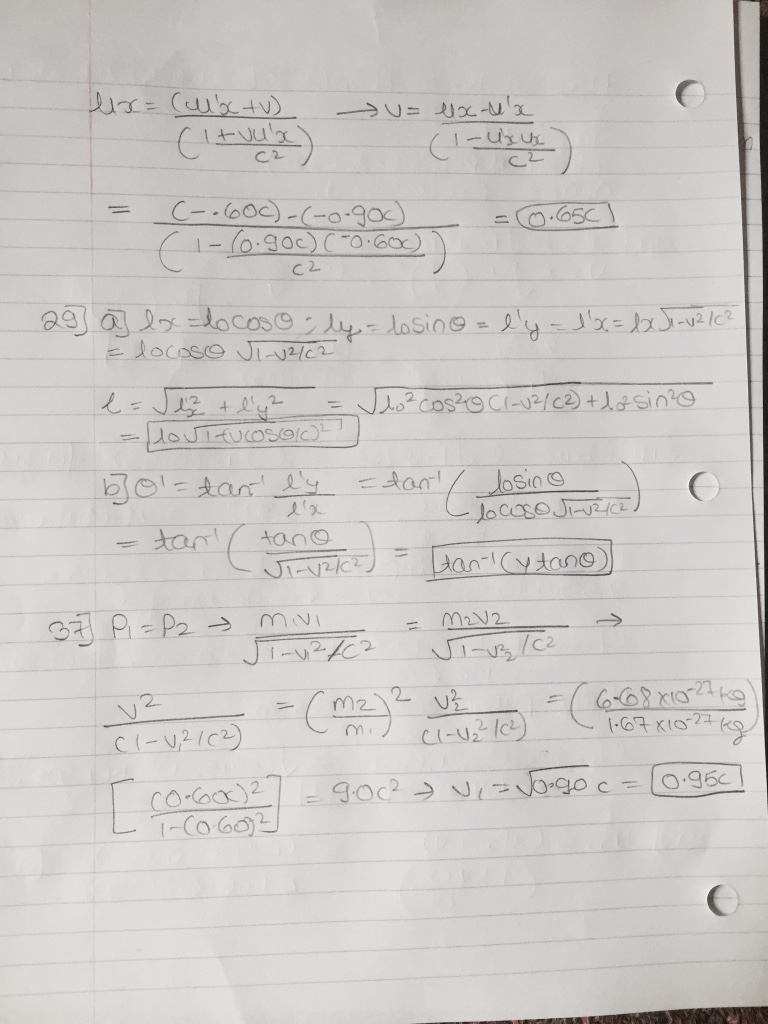 ux = (u'x+v) / (1+vu'x/c2) → v = ux-u'x / (1-u'xux/c2)
= (-.60c)-(-0.90c) / (1-(0.90c)(-0.60c)/c2) = 0.65c
29] a] lx = locosθ; ly = losinθ = l'y = l'x = lx√1-v2/c2
= locosθ √1-v2/c2
l = √l'x2 + l'y2 = √lo2cos2θ(1-v2/c2)+lo2sin2θ
= lo√1+(vcosθ/c)2
b] θ' = tan-1 l'y/l'x = tan-1 (losinθ / locosθ√1-v2/c2)
= tan-1 (tanθ / √1-v2/c2) = tan-1(γtanθ)
37] P1 = P2 → m1v1 / √1-v12/c2 = m2v2 / √1-v22/c2 →
v2 / (1-v12/c2) = (m2/m1)2 v22 / (1-v22/c2) = (6.68x10-27kg / 1.67x10-27kg)
[(0.60c)2 / 1-(0.60)2] = 9.0c2 → v1 = √0.90 c = 0.95c